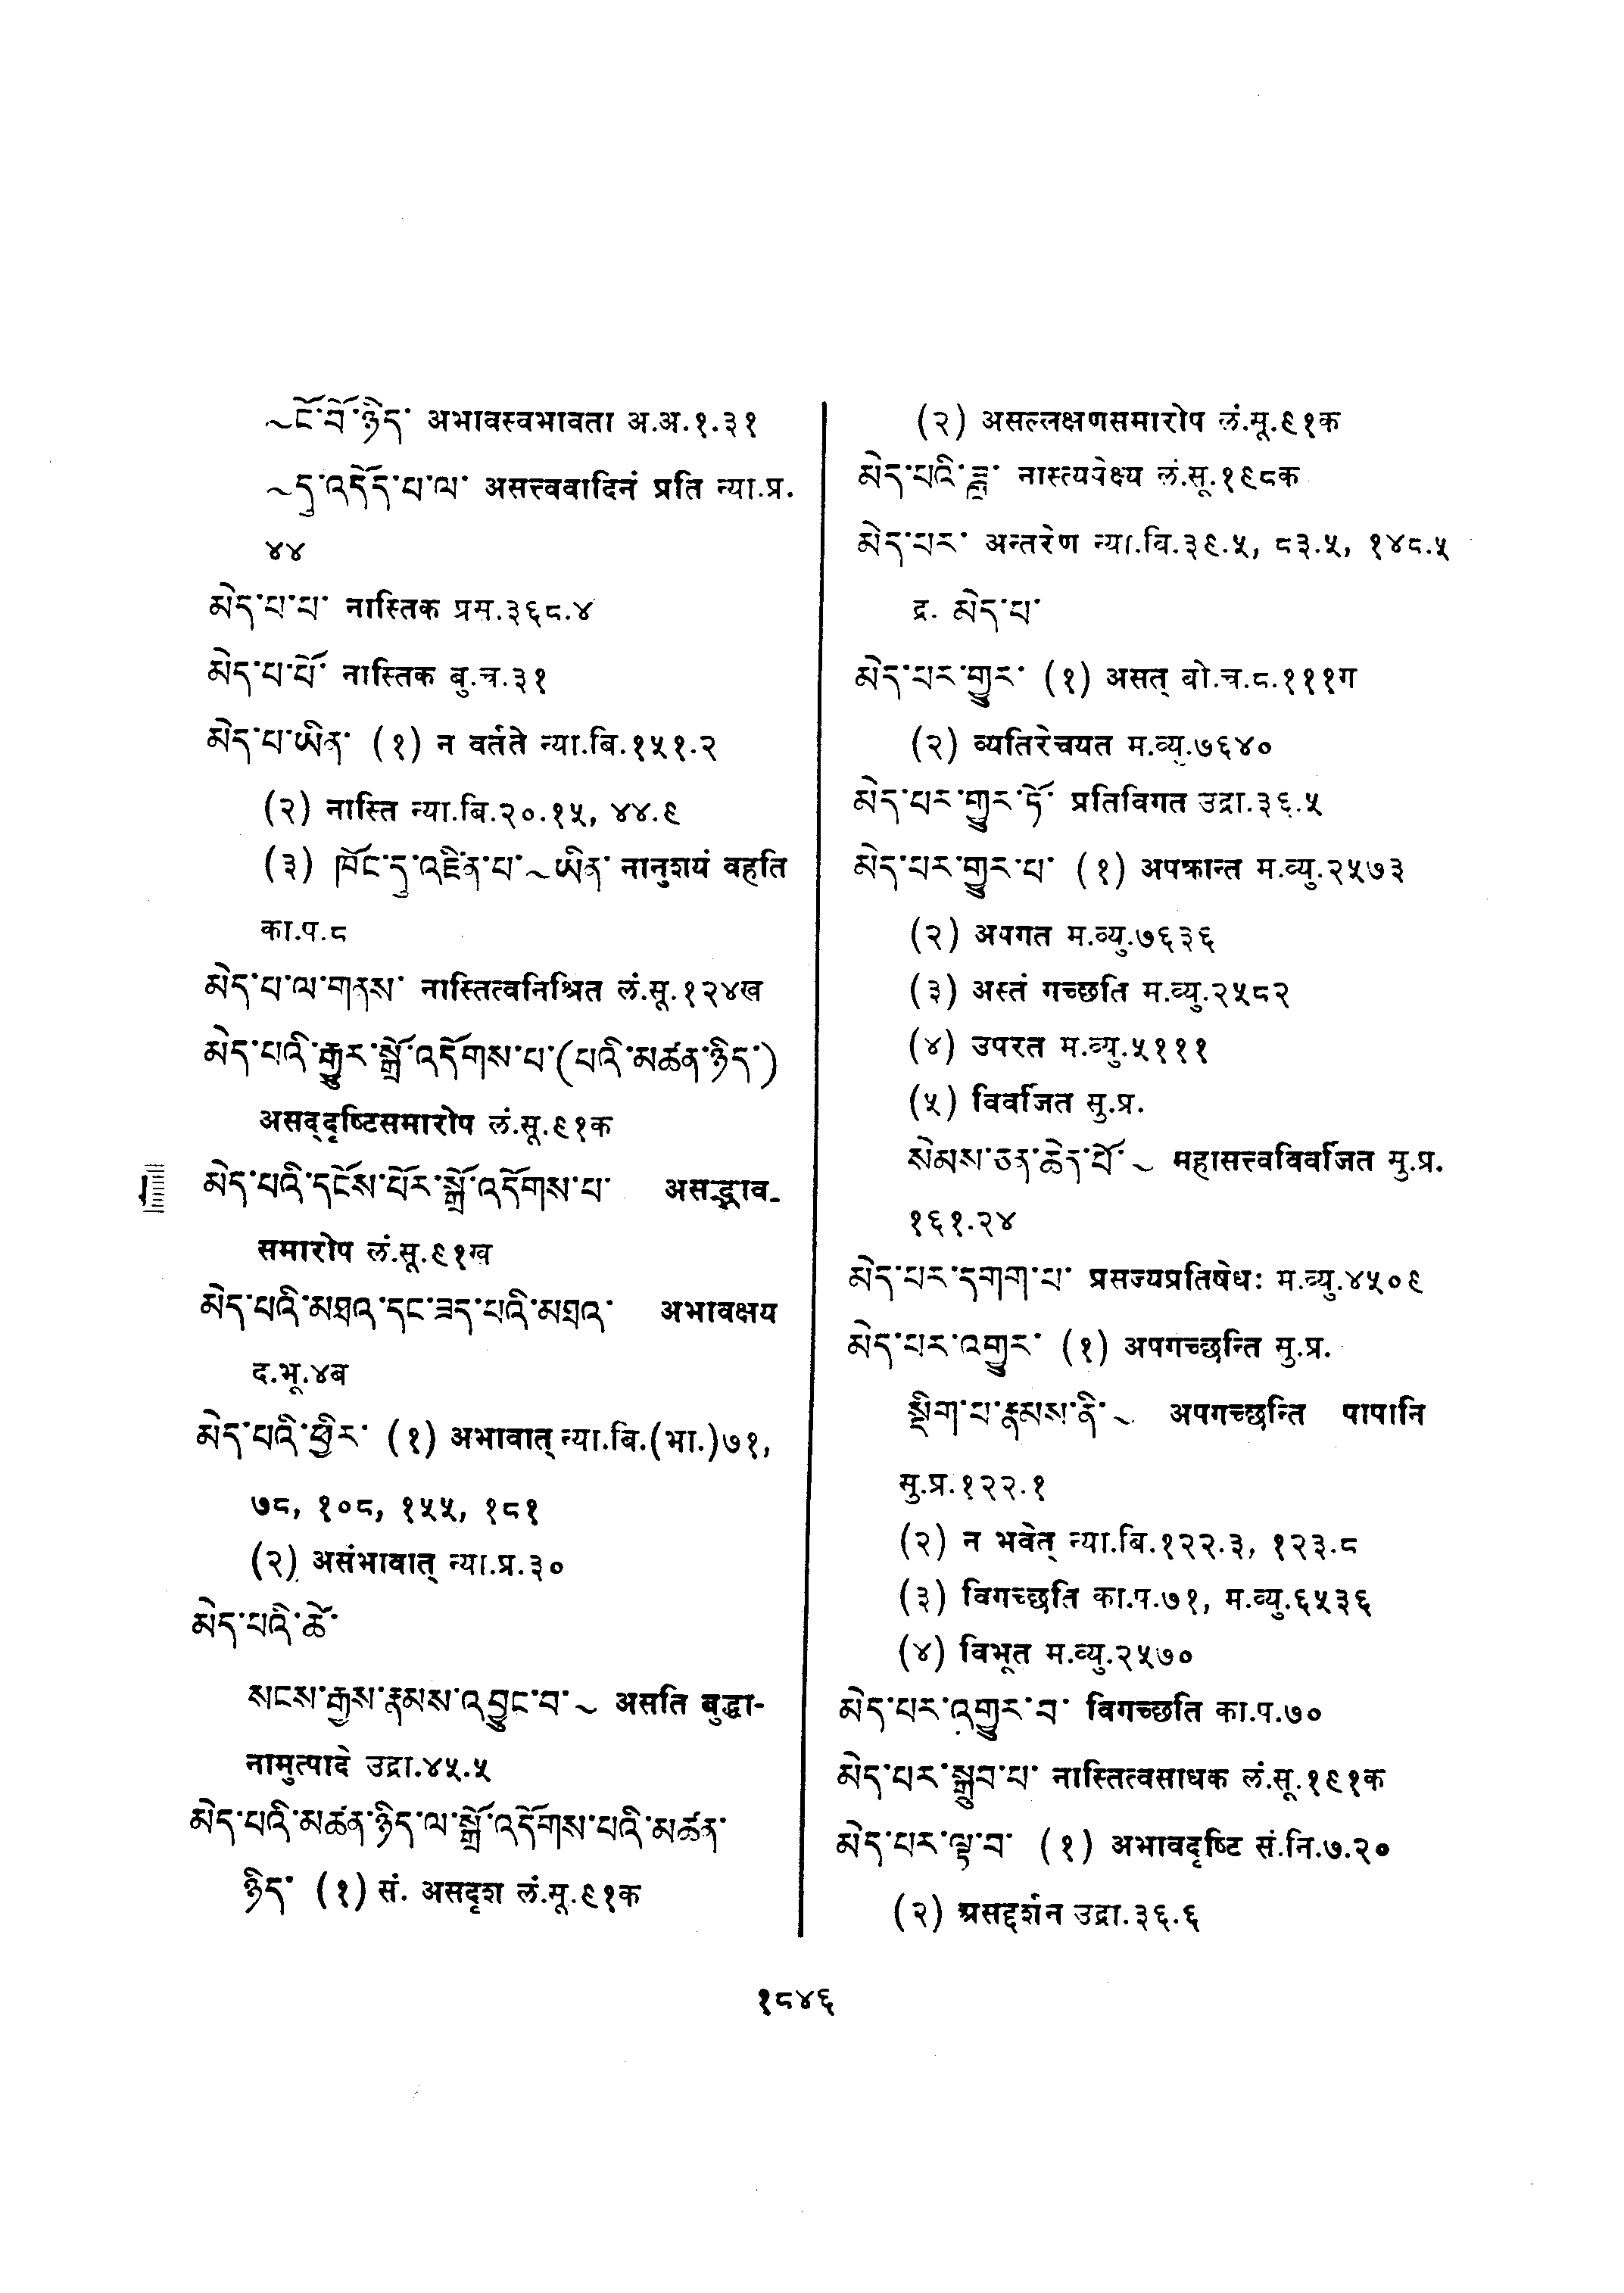 ~ངོ་བོ་ཉིད་ अभावस्वभावता अ.अ.१.३१
~དུ་འདོད་པ་ལ་ असत्त्ववादिनं प्रति न्या.प्र.
४४
མེད་པ་པ་ नास्तिक प्रस.३६८.४
མེད་པ་པོ་ नास्तिक बु.च.३१
མེད་པ་ཡིན་ (१) न वर्तते न्या.बि.१५१.२
(२) नास्ति न्या.बि.२०.१५, ४४.९
(३) ཁོང་དུ་འཛིན་པ་~ཡིན་ नानुशयं वहति
का.प.८
མེད་པ་ལ་གནས་ नास्तित्वनिश्रित लं.सू.१२४ख
མེད་པའི་རྒྱུར་སྒྲོ་འདོགས་པ་(པའི་མཚན་ཉིད་)
असद्दृष्टिसमारोप लं.सू.९१क
མེད་པའི་དངོས་པོར་སྒྲོ་འདོགས་པ་ असद्भाव-
समारोप लं.सू.९१ख
མེད་པའི་མཐའ་དང་ཟད་པའི་མཐའ་ अभावक्षय
द.भू.४ब
མེད་པའི་ཕྱིར་ (१) अभावात् न्या.बि.(भा.)७१,
७८, १०८, १५५, १८१
(२) असंभावात् न्या.प्र.३०
མེད་པའི་ཚེ་
སངས་རྒྱས་རྣམས་འབྱུང་བ་~ असति बुद्धा-
नामुत्पादे उद्रा.४५.५
མེད་པའི་མཚན་ཉིད་ལ་སྒྲོ་འདོགས་པའི་མཚན་
ཉིད་ (१) सं. असदृश लं.सू.९१क
(२) असल्लक्षणसमारोप लं.सू.९१क
མེད་པའི་ नास्त्यवेक्ष्य लं.सू.१९८क
མེད་པར་ अन्तरेण न्या.बि.३९.५, ८३.५, १४८.५
द्र. མེད་པ་
མེད་པར་གྱུར་ (१) असत् बो.च.८.१११ग
(२) व्यतिरेचयत म.व्यु.७६४०
མེད་པར་གྱུར་ཏོ་ प्रतिविगत उद्रा.३६.५
མེད་པར་གྱུར་པ་ (१) अपक्रान्त म.व्यु.२५७३
(२) अपगत म.व्यु.७६३६
(३) अस्तं गच्छति म.व्यु.२५८२
(४) उपरत म.व्यु.५१११
(५) विवर्जित सु.प्र.
སེམས་ཅན་ཆེན་པོ་~ महासत्त्वविवर्जित सु.प्र.
१६१.२४
མེད་པར་དགག་པ་ प्रसज्यप्रतिषेधः म.व्यु.४५०९
མེད་པར་འགྱུར་ (१) अपगच्छन्ति सु.प्र.
སྡིག་པ་རྣམས་ནི་~ अपगच्छन्ति पापानि
सु.प्र.१२२.१
(२) न भवेत् न्या.बि.१२२.३, १२३.८
(३) विगच्छति का.प.७१, म.व्यु.६५३६
(४) विभूत म.व्यु.२५७०
མེད་པར་འགྱུར་བ་ विगच्छति का.प.७०
མེད་པར་སྒྲུབ་པ་ नास्तित्वसाधक लं.सू.१९१क
མེད་པར་ལྟ་བ་ (१) अभावदृष्टि सं.नि.७.२०
(२) असद्दर्शन उद्रा.३६.६
१८४६